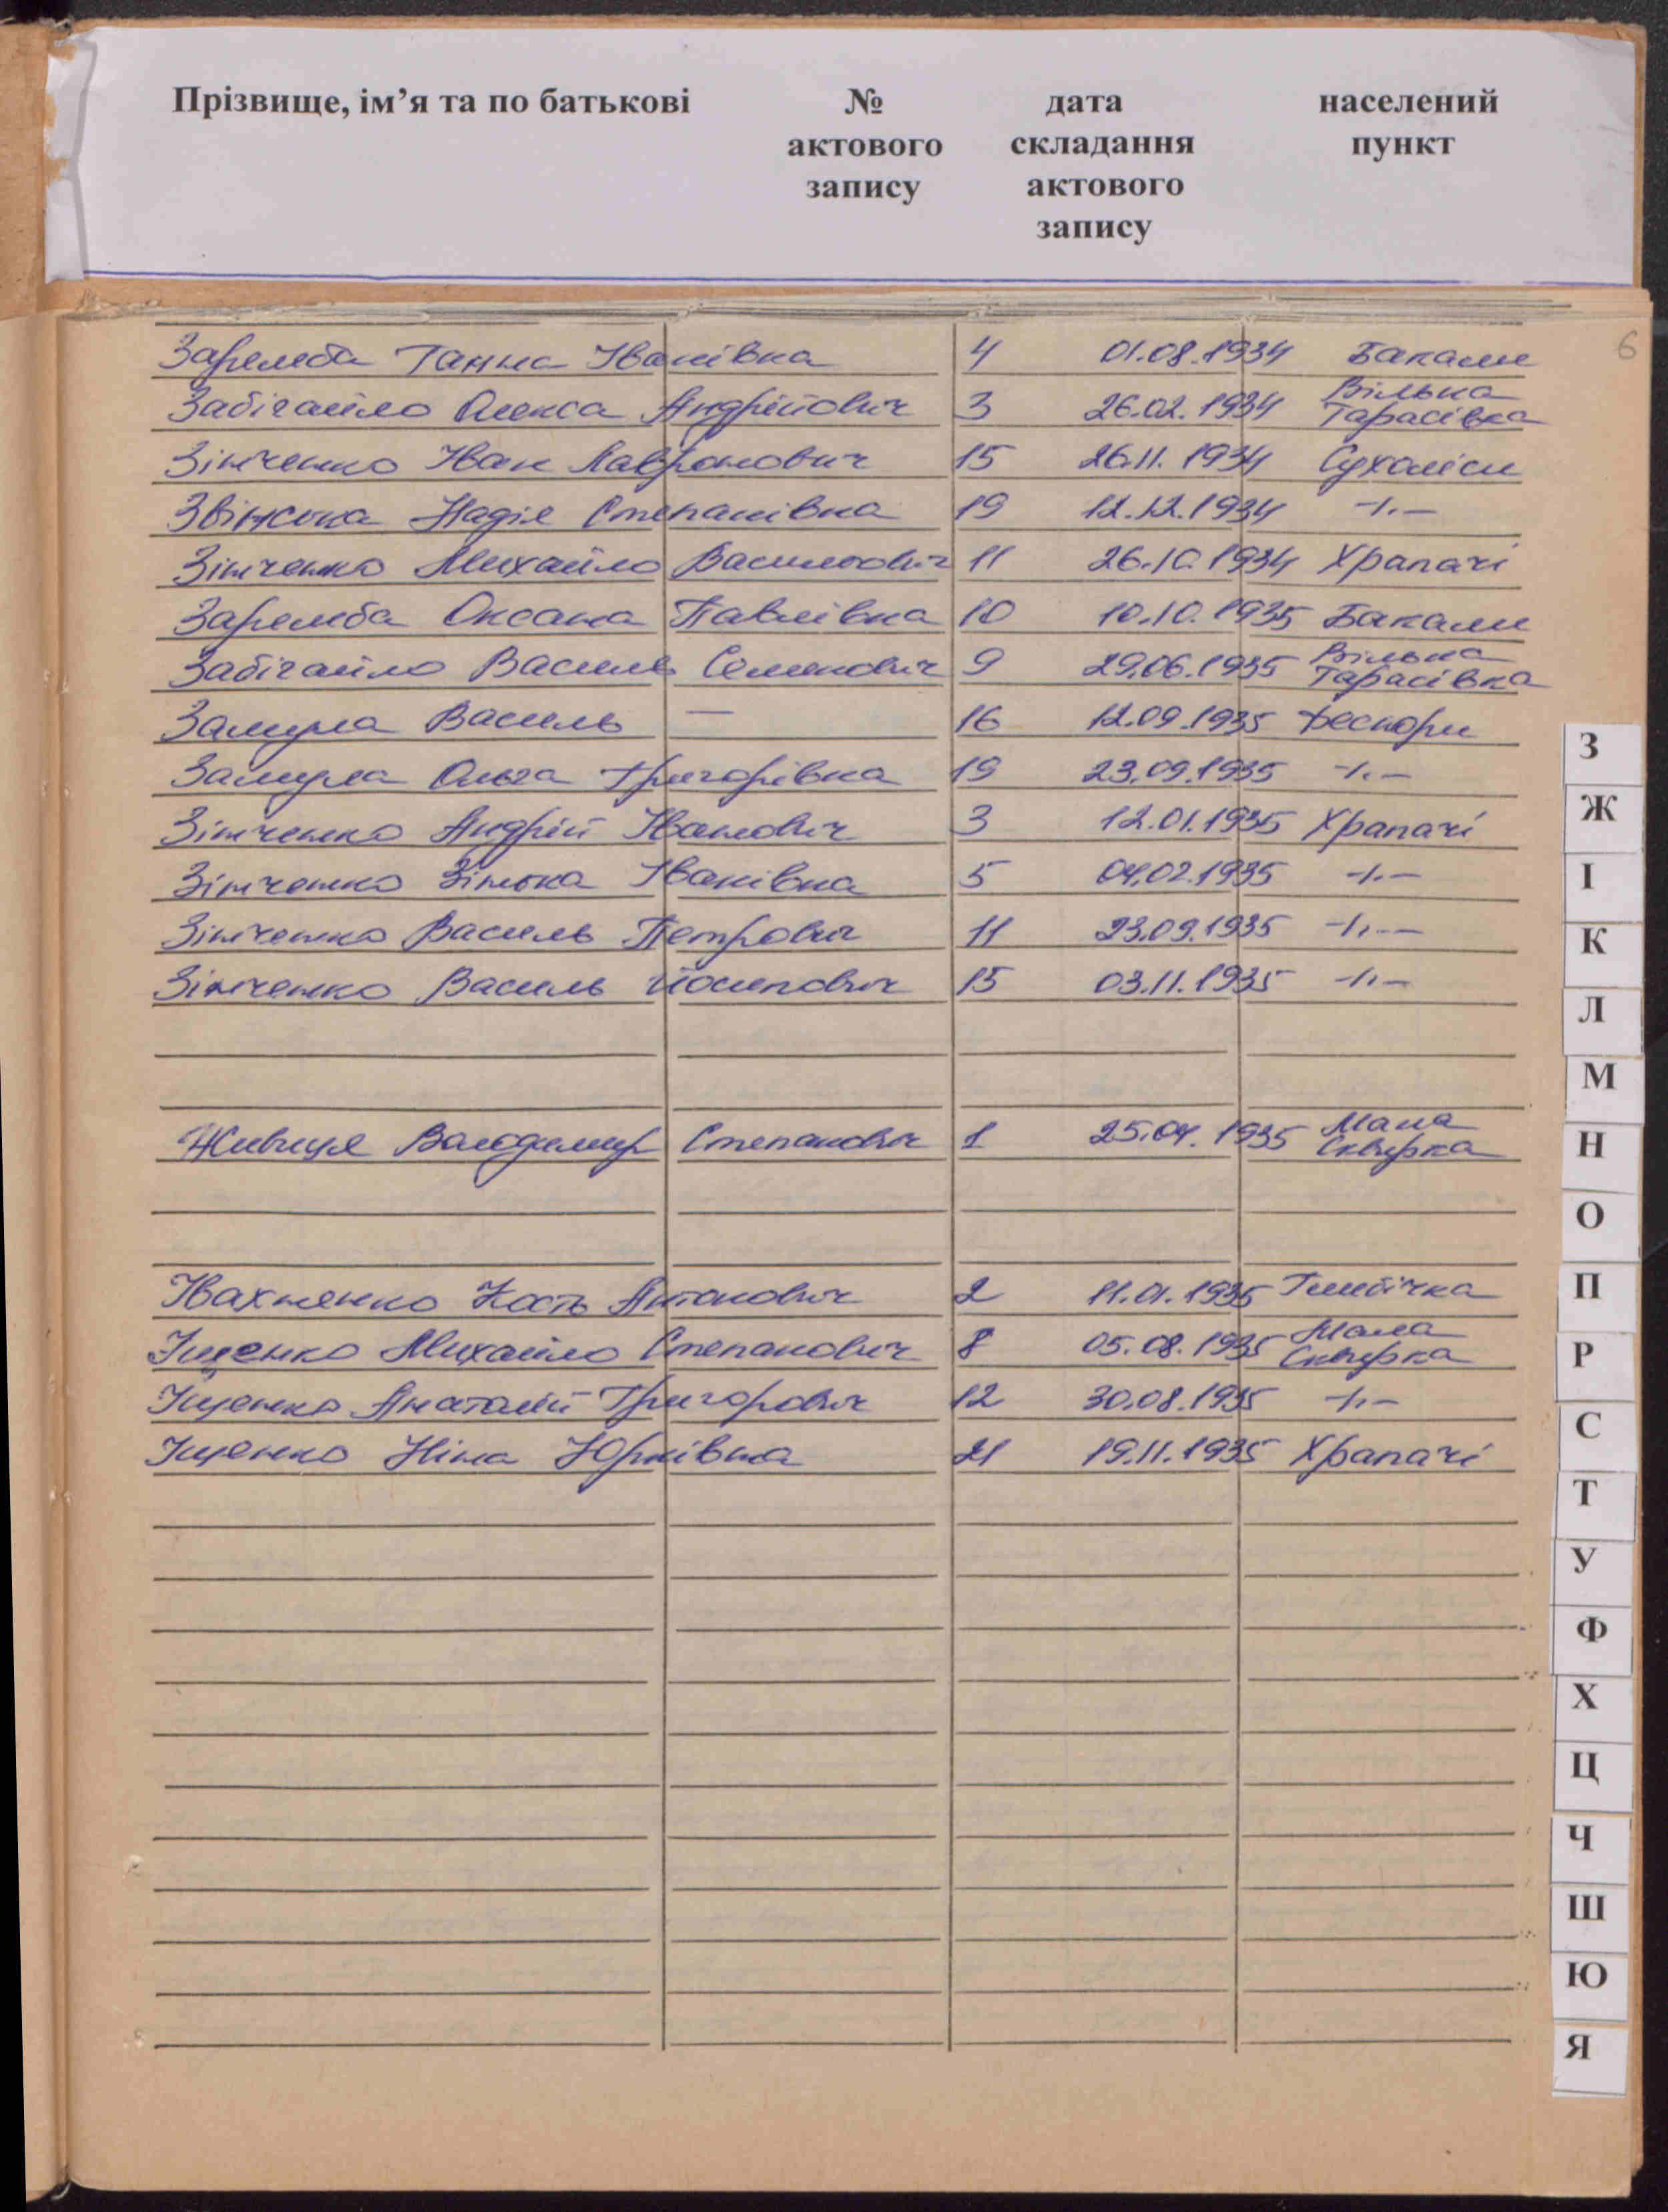 Прізвище, ім’я та по батькові № дата населений
актового складання пункт
запису актового
запису
6
Заремба Ганна Іванівна 4 01.08.1934 Бакали
Забігайло Олекса Андрійович 3 26.02.1934 Вільна Тарасівка
Зінченко Іван Лавронович 15 26.11.1934 Сухоліси
Звінська Надія Степанівна 19 12.12.1934 -//-
Зінченко Михайло Васильович 11 26.10.1934 Храпачі
Заремба Оксана Павлівна 10 10.10.1935 Бакали
Забігайло Василь Семенович 9 29.06.1935 Вільна Тарасівка
Замула Василь — 16 12.09.1935 Пескори
Замула Ольга Григорівна 19 23.09.1935 -//-
Зінченко Андрій Іванович 3 12.01.1935 Храпачі
Зінченко Зінька Іванівна 5 04.02.1935 -//-
Зінченко Василь Петрович 11 23.09.1935 -//-
Зінченко Василь Йосипович 15 03.11.1935 -//-
Живиця Володимир Степанович 1 25.04.1935 Мала Сквирка
Івахненко Кость Антонович 2 11.01.1935 Глибічка
Іщенко Михайло Степанович 8 05.08.1935 Мала Сквирка
Іщенко Анатолій Григорович 12 30.08.1935 -//-
Іщенко Ніна Юрківна 21 19.11.1935 Храпачі
З
Ж
І
К
Л
М
Н
О
П
Р
С
Т
У
Ф
Х
Ц
Ч
Ш
Ю
Я